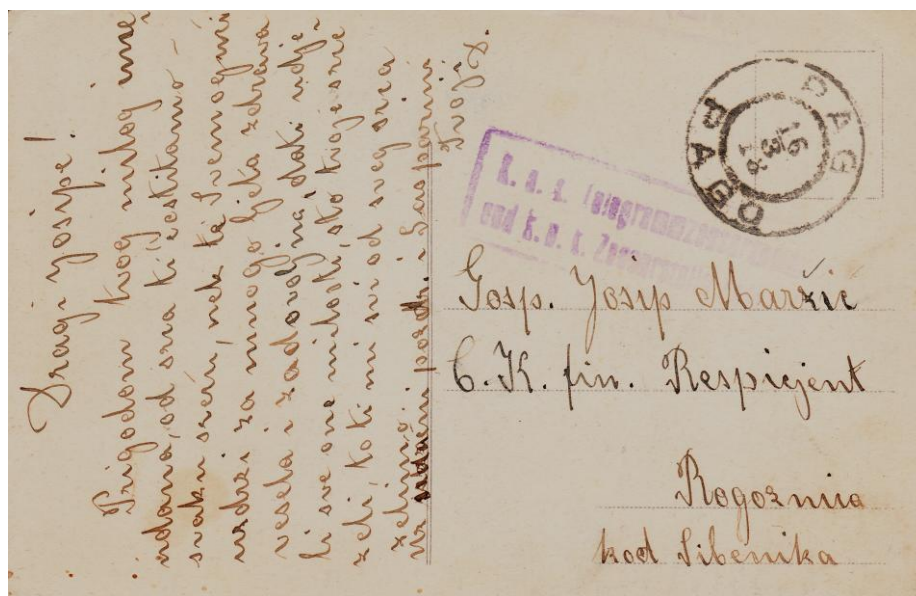 Dragi Josipe!
Prigodom tvog milog ime-
ndana, od srca ti čestitamo
svaku sreću, nek te Svemogući
uzdrži za mnogo ljeta zdrava
vesela i zadovoljna, i dati udje-
li sve one milosti, što tvoje srce
želi, koti mi svi od sveg srca
želimo
uz pozdr. i
Tvoj D.
PAG PAGO
16
3
18
K. u. k. Telegrammzensur
und k. u. k. Zensurstelle
Gosp. Josip Maržić
C. K. fin. Respicjent
Rogoznica
kod Šibenika